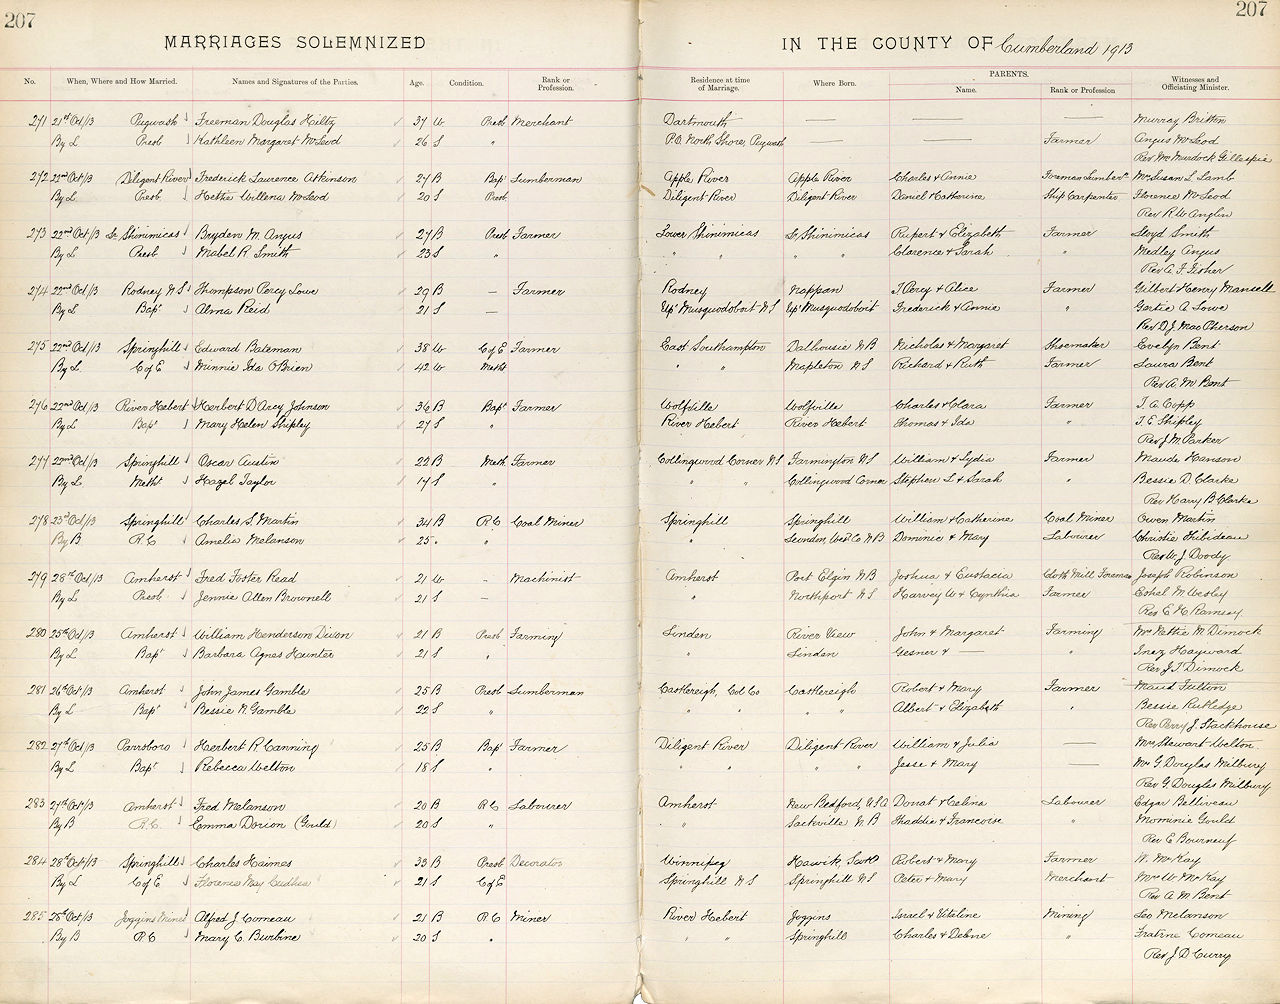 207
207
MARRIAGES SOLEMNIZED IN THE COUNTY OF Cumberland 1913
No. When, Where and How Married. Names and Signatures of the Parties. Age. Condition. Rank or Profession. Residence at time of Marriage. Where Born. PARENTS. Name. Rank or Profession Witnesses and Officiating Minister.
271 21st Oct/13 Pugwash Freeman Douglas Hiltz 37 W Presb Merchant Dartmouth — — — Murray Britten
By L Presb Kathleen Margaret McLeod 26 S " P.O. North Shore, Pugwash — Farmer Angus McLeod
Rev Mc Murdock Gillespie
272 22nd Oct/13 Diligent River Frederick Laurence Atkinson 27 B Bapt Lumberman Apple River Apple River Charles & Annie Foreman Lumber Mrs Susan L Lamb
By L Presb Hettie Willena McLeod 20 S Presb Diligent River Diligent River Daniel Catherine Ship Carpenter Florence McLeod
Rev R W Anglin
273 22nd Oct/13 Lr Shinimicas Bryden M. Angus 27 B Presb Farmer Lower Shinimicas Lr Shinimicas Rupert & Elizabeth Farmer Lloyd Smith
By L Presb Mabel R. Smith 23 S " " " " " Clarence & Sarah " Medley Angus
Rev A. F. Fisher
274 22nd Oct/13 Rodney N S Thompson Percy Lowe 29 B — Farmer Rodney Nappan J Percy & Alice Farmer Gilbert Henry Mansell
By L Bapt Alma Reid 21 S — Upr Musquodoboit N S Upr Musquodoboit Frederick & Annie " Gertie A Lowe
Rev D. J. MacPherson
275 22nd Oct/13 Springhill Edward Bateman 38 W C of E Farmer East Southampton Dalhousie N B Nicholas & Margaret Shoemaker Evelyn Bent
By L C of E Minnie Ida O'Brien 42 W Meth " " Mapleton N S Richard & Ruth Farmer Laura Bent
Rev A. M. Bent
276 22nd Oct/13 River Hebert Herbert D'Arcy Johnson 36 B Bapt Farmer Wolfville Wolfville Charles & Clara Farmer T. A. Copp
By L Bapt Mary Helen Shipley 27 S " River Hebert River Hebert Thomas & Ida " T. E. Shipley
Rev J. M. Parker
277 22nd Oct/13 Springhill Oscar Austin 22 B Meth Farmer Collingwood Corner N S Farmington N S William & Lydia Farmer Maude Hanson
By L Metht Hazel Taylor 17 S " " " Collingwood Corner Stephen L & Sarah " Bessie D. Clarke
Rev Harry B Clarke
278 23d Oct/13 Springhill Charles S. Martin 34 B R C Coal Miner Springhill Springhill William & Catherine Coal Miner Owen Martin
By B R C Amelia Melanson 25 " " " N B Dominic & Mary Labourer Christie Thibideau
Rev W. J. Doody
279 28th Oct/13 Amherst Fred Foster Read 21 W - Machinist Amherst Port Elgin N B Joshua & Eustacia Cloth Mill Foreman Joseph Robinson
By L Presb Jennie Allen Brownell 21 S — " Northport N S Harvey W & Cynthia Farmer Ethel M Wesley
Rev E. H. Ramsay
280 25th Oct/13 Amherst William Henderson Dixon 21 B Presb Farming Linden River View John & Margaret Farming Mrs Nettie M. Dimock
By L Bapt Barbara Agnes Hunter 21 S " " Linden Gesner & — " Inez Hayward
Rev J. T. Dimock
281 26th Oct/13 Amherst John James Gamble 25 B Presb Lumberman Castlereigh, Col Co Castlereigh Robert & Mary Farmer Maud Fulton
By L Bapt Bessie N. Gamble 22 S " " " " " " Albert & Elizabeth " Bessie Rutledge
Rev Perry J. Stackhouse
282 27th Oct/13 Parrsboro Herbert R Canning 25 B Bapt Farmer Diligent River Diligent River William & Julia — Mrs Stewart Welton
By L Bapt Rebecca Welton 18 S " " " " " Jesse & Mary — Mrs G. Douglas Milbury
Rev G. Douglas Milbury
283 27th Oct/13 Amherst Fred Melanson 20 B R C Labourer Amherst New Bedford, U S A Donat & Celina Labourer Edgar Belliveau
By B R. C. Emma Dorion (Gould) 20 S " " Sackville N. B Thaddie & Francoise " Mominie Gould
Rev E Bourneuf
284 28th Oct/13 Springhill Charles Haimes 33 B Presb Decorator Winnipeg Hawick, Scot Robert & Mary Farmer W. McKay
By L C of E Florence May 21 S C of E Springhill N S Springhill N S Peter & Mary Merchant Mrs W. McKay
Rev A. M. Bent
285 28th Oct/13 Joggins Mines Alfred J Comeau 21 B R C Miner River Hebert Joggins Israel & Vitaline Mining Leo Melanson
By B R C Mary C. Burbine 20 S " " " Springhill Charles & Debne " Fratine Comeau
Rev J. D. Curry